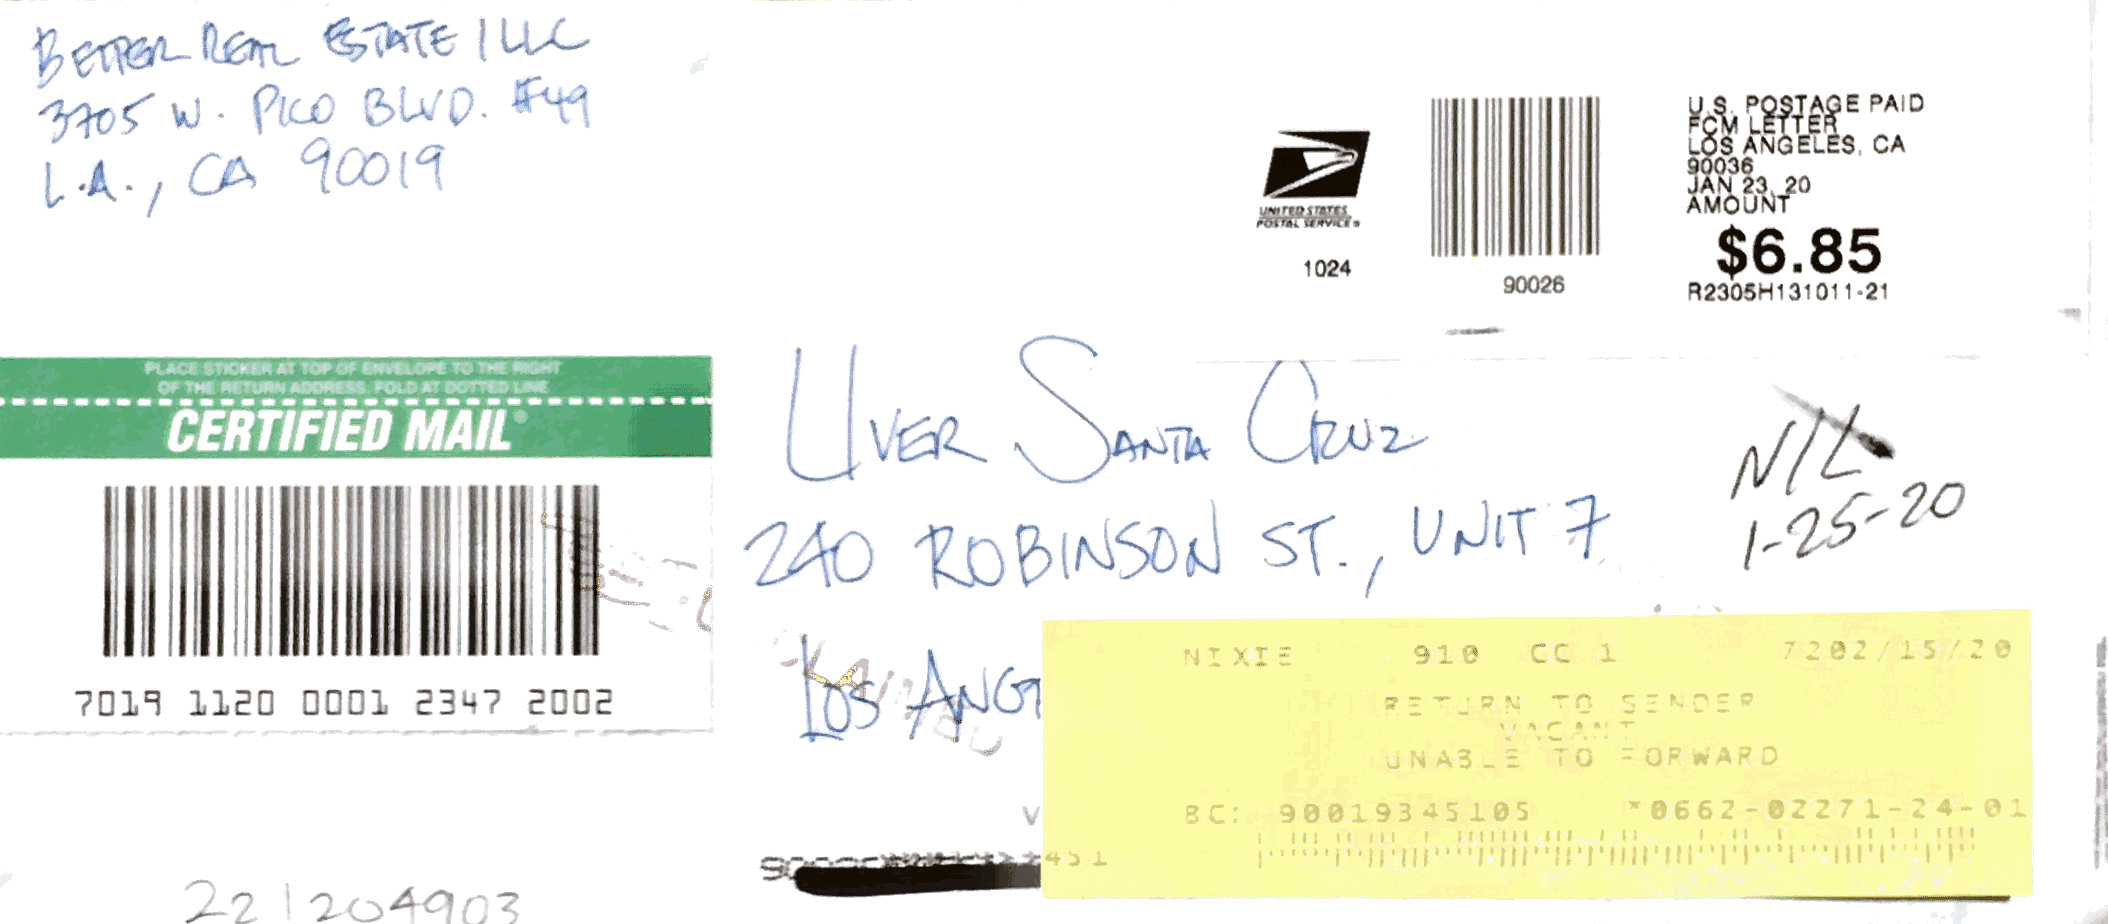 BETTER REAL ESTATE 1 LLC
3705 W. PICO BLVD. #49
L.A., CA 90019
U.S. POSTAGE PAID
FCM LETTER
LOS ANGELES, CA
90036
JAN 23, 20
AMOUNT
$6.85
R2305H131011-21
UNITED STATES
POSTAL SERVICE®
1024
90026
PLACE STICKER AT TOP OF ENVELOPE TO THE RIGHT
OF THE RETURN ADDRESS, FOLD AT DOTTED LINE
CERTIFIED MAIL®
7019 1120 0001 2347 2002
UVER SANTA CRUZ
240 ROBINSON ST., UNIT 7
LOS ANG
N/L
1-25-20
NIXIE 910 CC 1 7202/15/20
RETURN TO SENDER
VACANT
UNABLE TO FORWARD
BC: 90019345105 *0662-02271-24-01
221204903